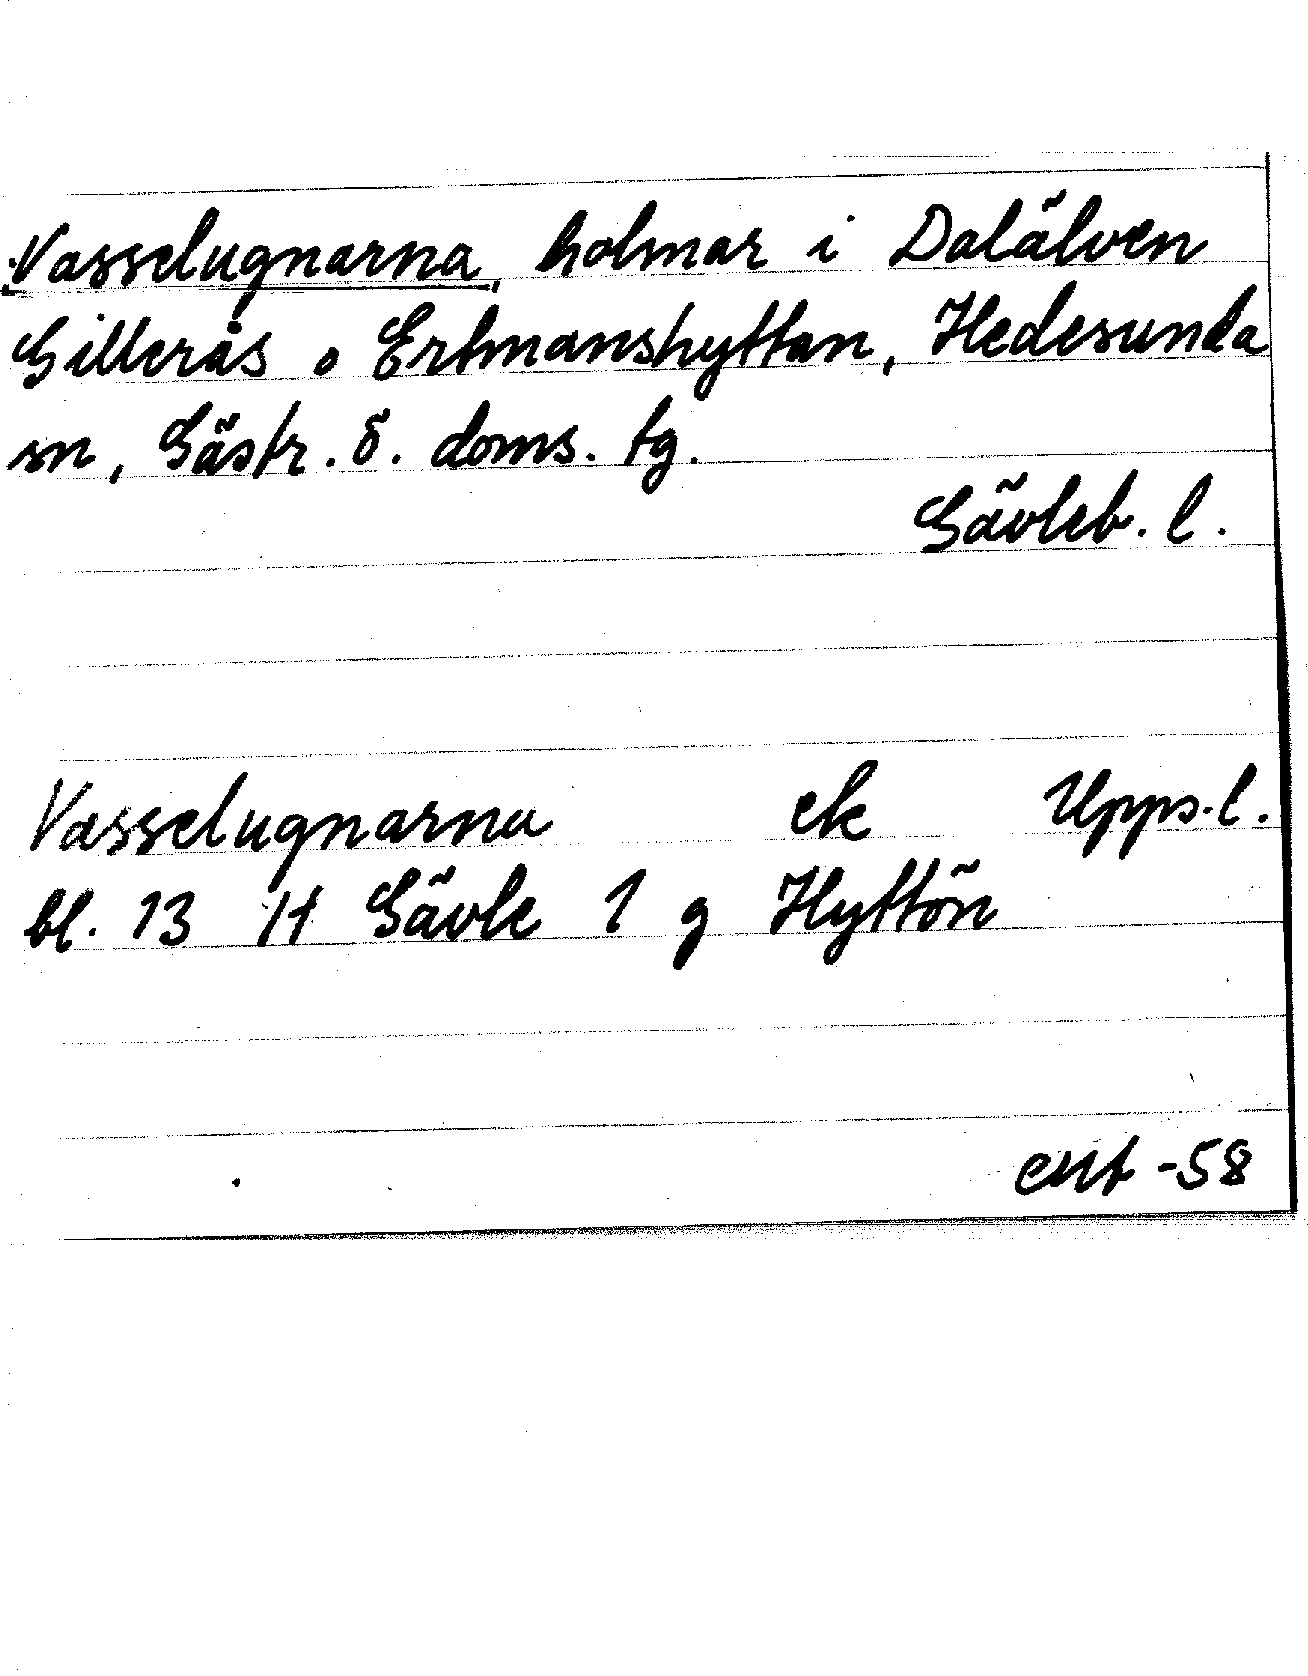 Vasselugnarna, holmar i Dalälven
Gillerås o Ertmanshyttan, Hedesunda
sn, Gästr. ö. doms. tg.
Gävleb. l.
Vasselugnarna ek Upps. l.
bl. 13 H Gävle 1 g Hyttön
ent -58